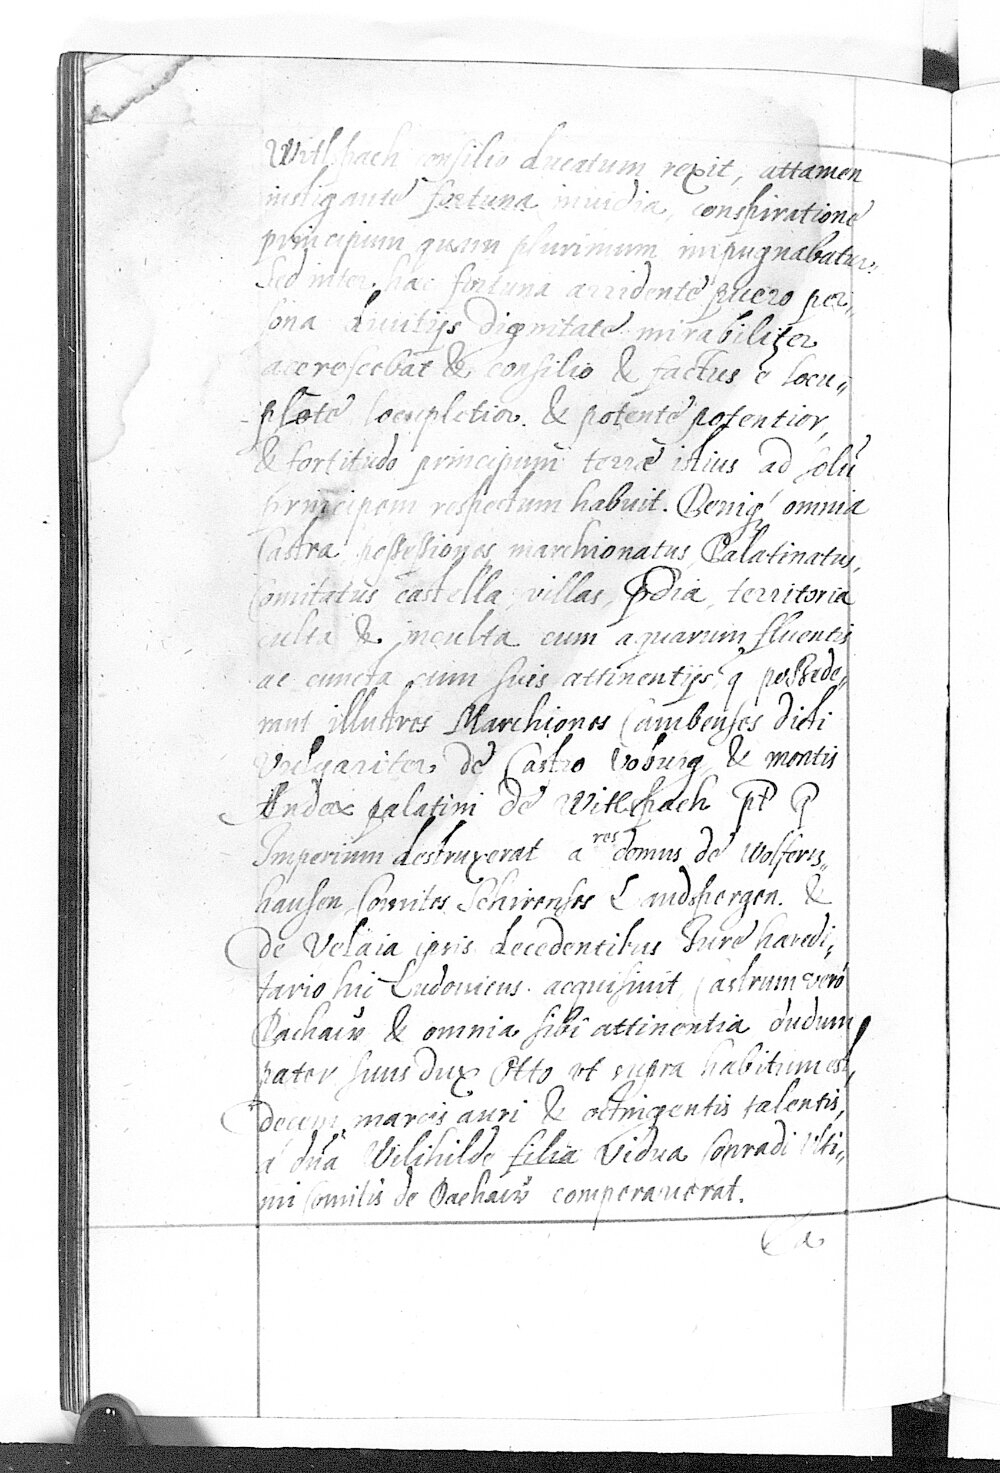 Witlspach consilio ducatum rexit, attamen
instigante fortuna inuidia, conspiratione
principum quam plurimum impugnabatur.
Sed inter hac fortuna arridente puero per„
sona diuitijs dignitate mirabiliter
accrescebat & consilio & factus e locu„
plete locupletior. & potente potentior,
& fortitudo principum terræ istius ad solū
principem respectum habuit. Deniq omnia
Castra possessiones marchionatus Palatinatus,
Comitatus castella villas, prdia, territoria
culta & inculta cum aquarum fluentis
ac cuncta cum suis attinentijs q possede„
runt illustres Marchiones Cambenses dicti
vulgariter de Castro Voburg & montis
Andex palatini de Witlspach
Imperium destruxerat ares domus de Wolferts„
hausen Comites Schirenses Landspergen. &
de Velaia ipsis decedentibus Jure haredi„
tario hic Ludouicus acquisiuit, Castrum verò
Dachaw & omnia sibi attinentia dudum
pater suus dux Otto vt supra habitum est,
decem marcis auri & octingentis talentis,
à dña Wilihilde filia Vidua Conradi Vlti„
mi Comitis de Dachaw comperauerat.